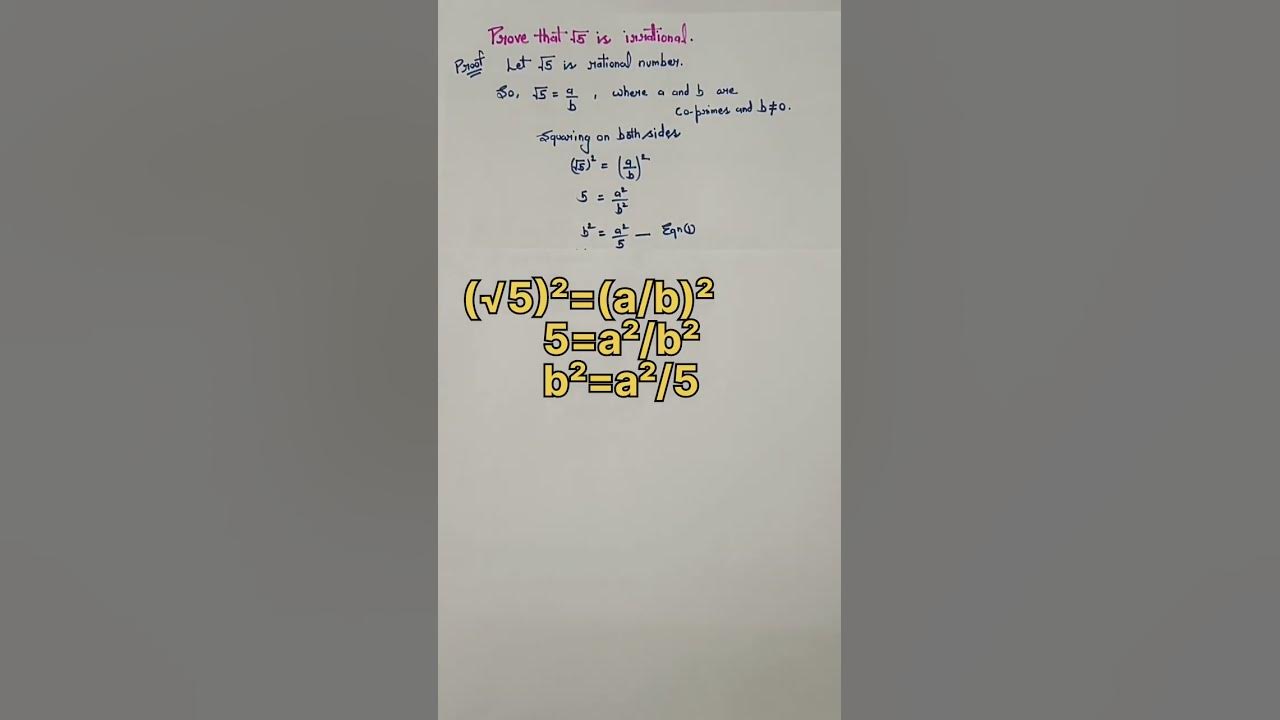 Prove that √5 is irrational.
Proof Let √5 is rational number.
So, √5 = a/b , where a and b are
co-primes and b≠0.
Squaring on both sides
(√5)² = (a/b)²
5 = a²/b²
b² = a²/5 — Eqn(1)
(√5)²=(a/b)²
5=a²/b²
b²=a²/5